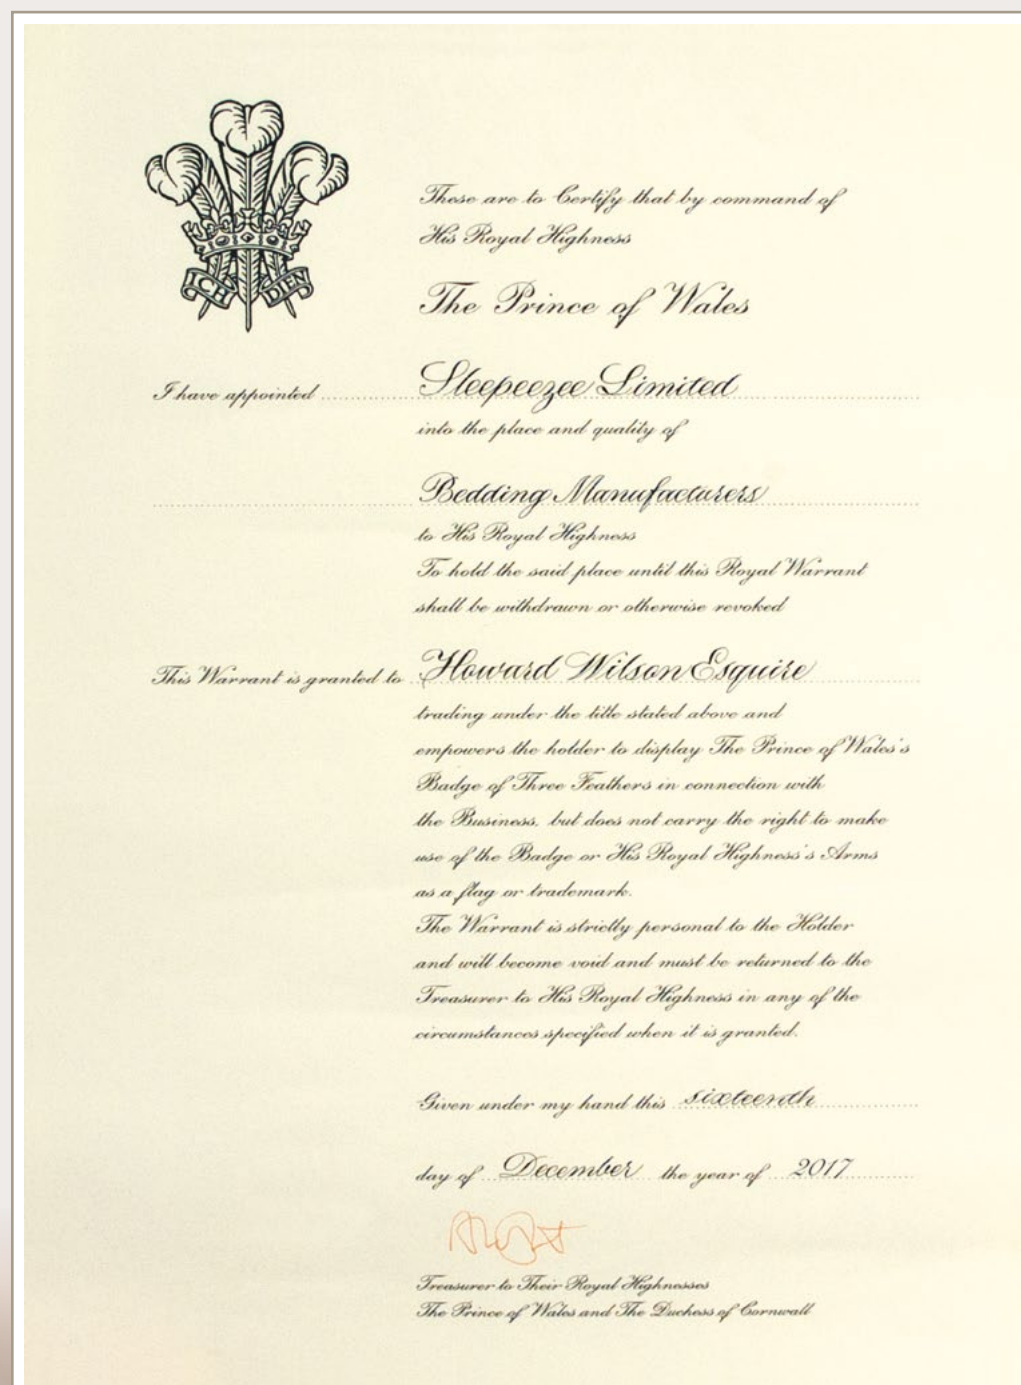 ICH DIEN
These are to Certify that by command of
His Royal Highness
The Prince of Wales
I have appointed Sleepeezee Limited
into the place and quality of
Bedding Manufacturers
to His Royal Highness
To hold the said place until this Royal Warrant
shall be withdrawn or otherwise revoked
This Warrant is granted to Howard Wilson Esquire
trading under the title stated above and
empowers the holder to display The Prince of Wales's
Badge of Three Feathers in connection with
the Business, but does not carry the right to make
use of the Badge or His Royal Highness's Arms
as a flag or trademark.
The Warrant is strictly personal to the Holder
and will become void and must be returned to the
Treasurer to His Royal Highness in any of the
circumstances specified when it is granted.
Given under my hand this sixteenth
day of December the year of 2017
Treasurer to Their Royal Highnesses
The Prince of Wales and The Duchess of Cornwall